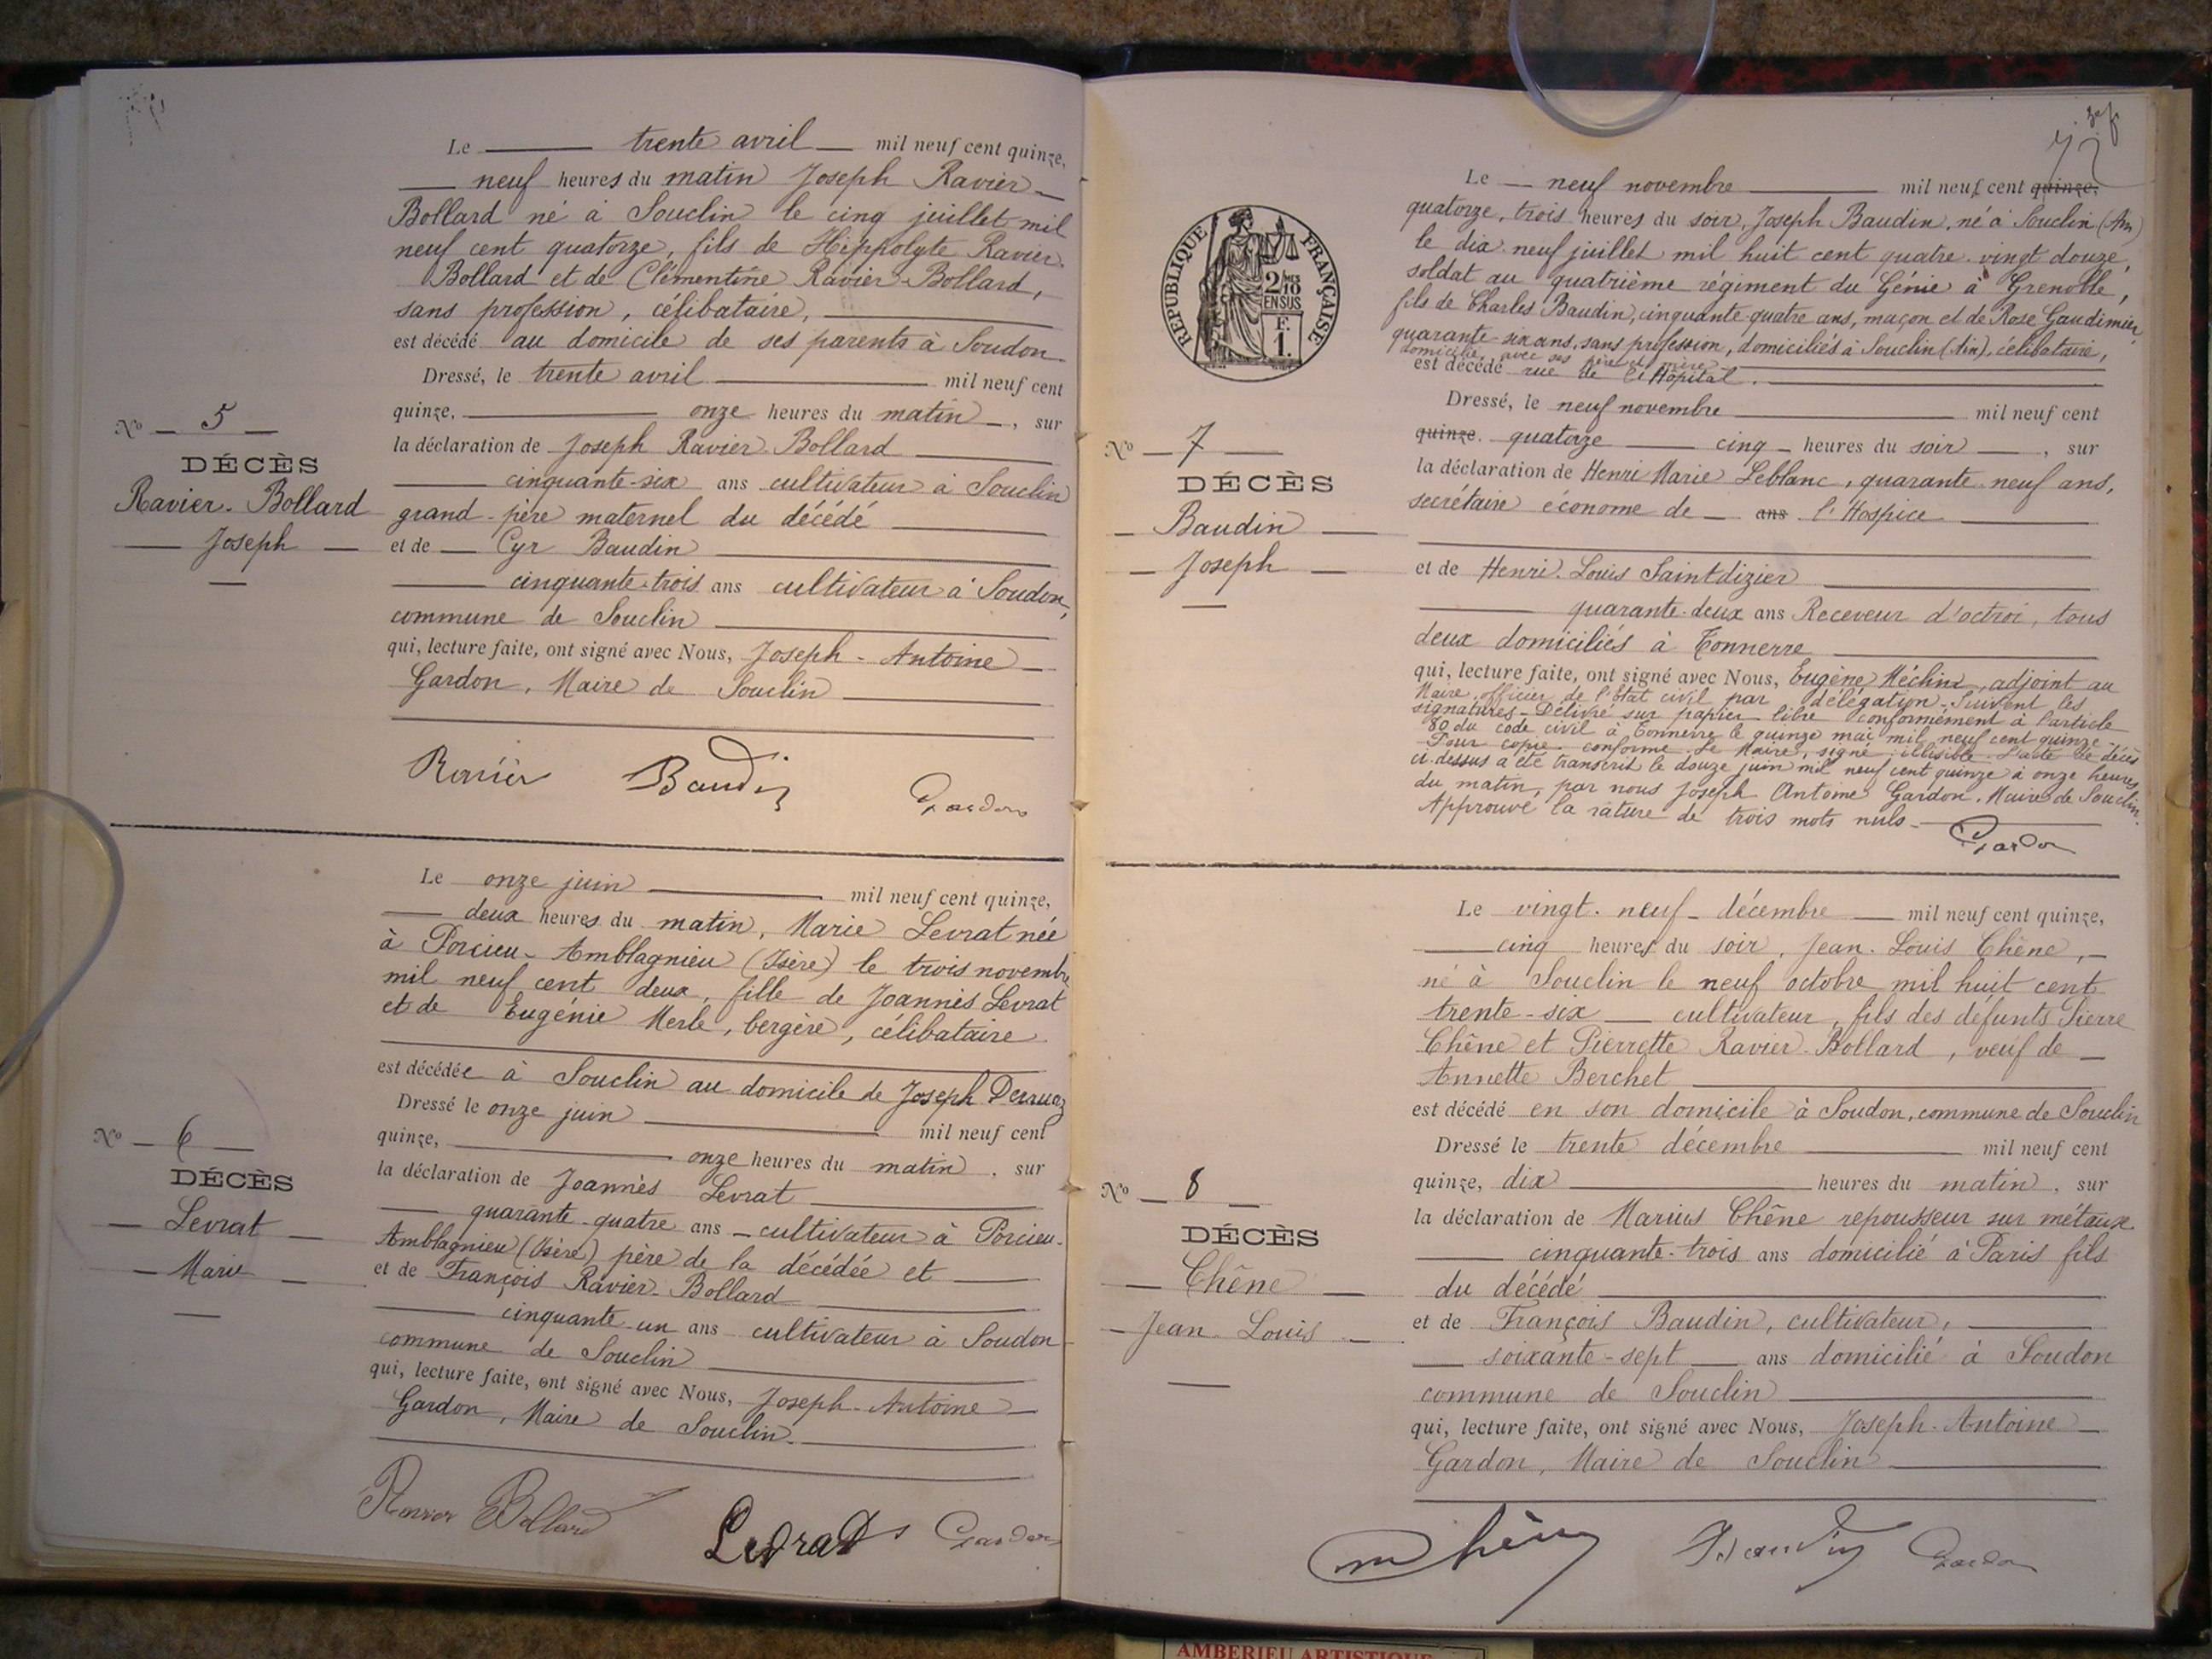 Le trente avril mil neuf cent quinze,
neuf heures du matin Joseph Ravier
Bollard né à Souclin le cinq juillet mil
neuf cent quatorze, fils de Hippolyte Ravier
Bollard et de Clémentine Ravier-Bollard,
sans profession, célibataire,
est décédé au domicile de ses parents à Soudon
Dressé, le trente avril mil neuf cent
quinze, onze heures du matin, sur
la déclaration de Joseph Ravier Bollard
cinquante-six ans cultivateur à Souclin
grand-père maternel du décédé
et de Cyr Baudin
cinquante-trois ans cultivateur à Soudon,
commune de Souclin
qui, lecture faite, ont signé avec Nous, Joseph-Antoine
Gardon, Maire de Souclin
Ravier Baudin Gardon
No 5
DÉCÈS
Ravier-Bollard
Joseph
Le onze juin mil neuf cent quinze,
deux heures du matin, Marie Levrat née
à Porcieu-Amblagnieu (Isère) le trois novembre
mil neuf cent deux, fille de Joannès Levrat
et de Eugénie Merle, bergère, célibataire
est décédée à Souclin au domicile de Joseph Derruaz
Dressé le onze juin mil neuf cent
quinze, onze heures du matin, sur
la déclaration de Joannès Levrat
quarante-quatre ans cultivateur à Porcieu-
Amblagnieu (Isère) père de la décédée et
et de François Ravier-Bollard
cinquante-un ans cultivateur à Soudon
commune de Souclin
qui, lecture faite, ont signé avec Nous, Joseph-Antoine
Gardon, Maire de Souclin.
Ravier Bollard Levrat Gardon
No 6
DÉCÈS
Levrat
Marie
RÉPUBLIQUE FRANÇAISE
2/10 EN SUS
F. 1.
Le neuf novembre mil neuf cent quinze,
quatorze, trois heures du soir, Joseph Baudin, né à Souclin (Ain)
le dix-neuf juillet mil huit cent quatre-vingt douze,
soldat au quatrième régiment du Génie à Grenoble,
fils de Charles Baudin, cinquante-quatre ans, maçon et de Rose Gaudimier
quarante-six ans, sans profession, domiciliés à Souclin (Ain), célibataire,
domicilié avec ses père et mère
est décédé rue de l'Hôpital.
Dressé, le neuf novembre mil neuf cent
quinze. quatorze cinq heures du soir, sur
la déclaration de Henri Marie Leblanc, quarante-neuf ans,
secrétaire économe de ans l'Hospice
et de Henri-Louis Saintdizier
quarante-deux ans Receveur d'octroi, tous
deux domiciliés à Tonnerre
qui, lecture faite, ont signé avec Nous, Eugène Méchin, adjoint au
Maire, officier de l'état civil par délégation. Suivent les
signatures - Délivré sur papier libre conformément à l'article
80 du code civil à Tonnerre le quinze mai mil neuf cent quinze -
Pour copie conforme. Le Maire, signé: illisible. L'acte de décès
ci-dessus a été transcrit le douze juin mil neuf cent quinze à onze heures
du matin, par nous Joseph Antoine Gardon, Maire de Souclin.
Approuvé la rature de trois mots nuls - Gardon
No 7
DÉCÈS
Baudin
Joseph
Le vingt-neuf décembre mil neuf cent quinze,
cinq heures du soir, Jean-Louis Chêne,
né à Souclin le neuf octobre mil huit cent
trente-six cultivateur, fils des défunts Pierre
Chêne et Pierrette Ravier-Bollard, veuf de
Annette Berchet
est décédé en son domicile à Soudon, commune de Souclin
Dressé le trente décembre mil neuf cent
quinze, dix heures du matin, sur
la déclaration de Marius Chêne repousseur sur métaux
cinquante-trois ans domicilié à Paris fils
du décédé
et de François Baudin, cultivateur,
soixante-sept ans domicilié à Soudon
commune de Souclin
qui, lecture faite, ont signé avec Nous, Joseph-Antoine
Gardon, Maire de Souclin
m Chêne Baudin Gardon
No 8
DÉCÈS
Chêne
Jean-Louis
AMBERIEU ARTISTIQUE